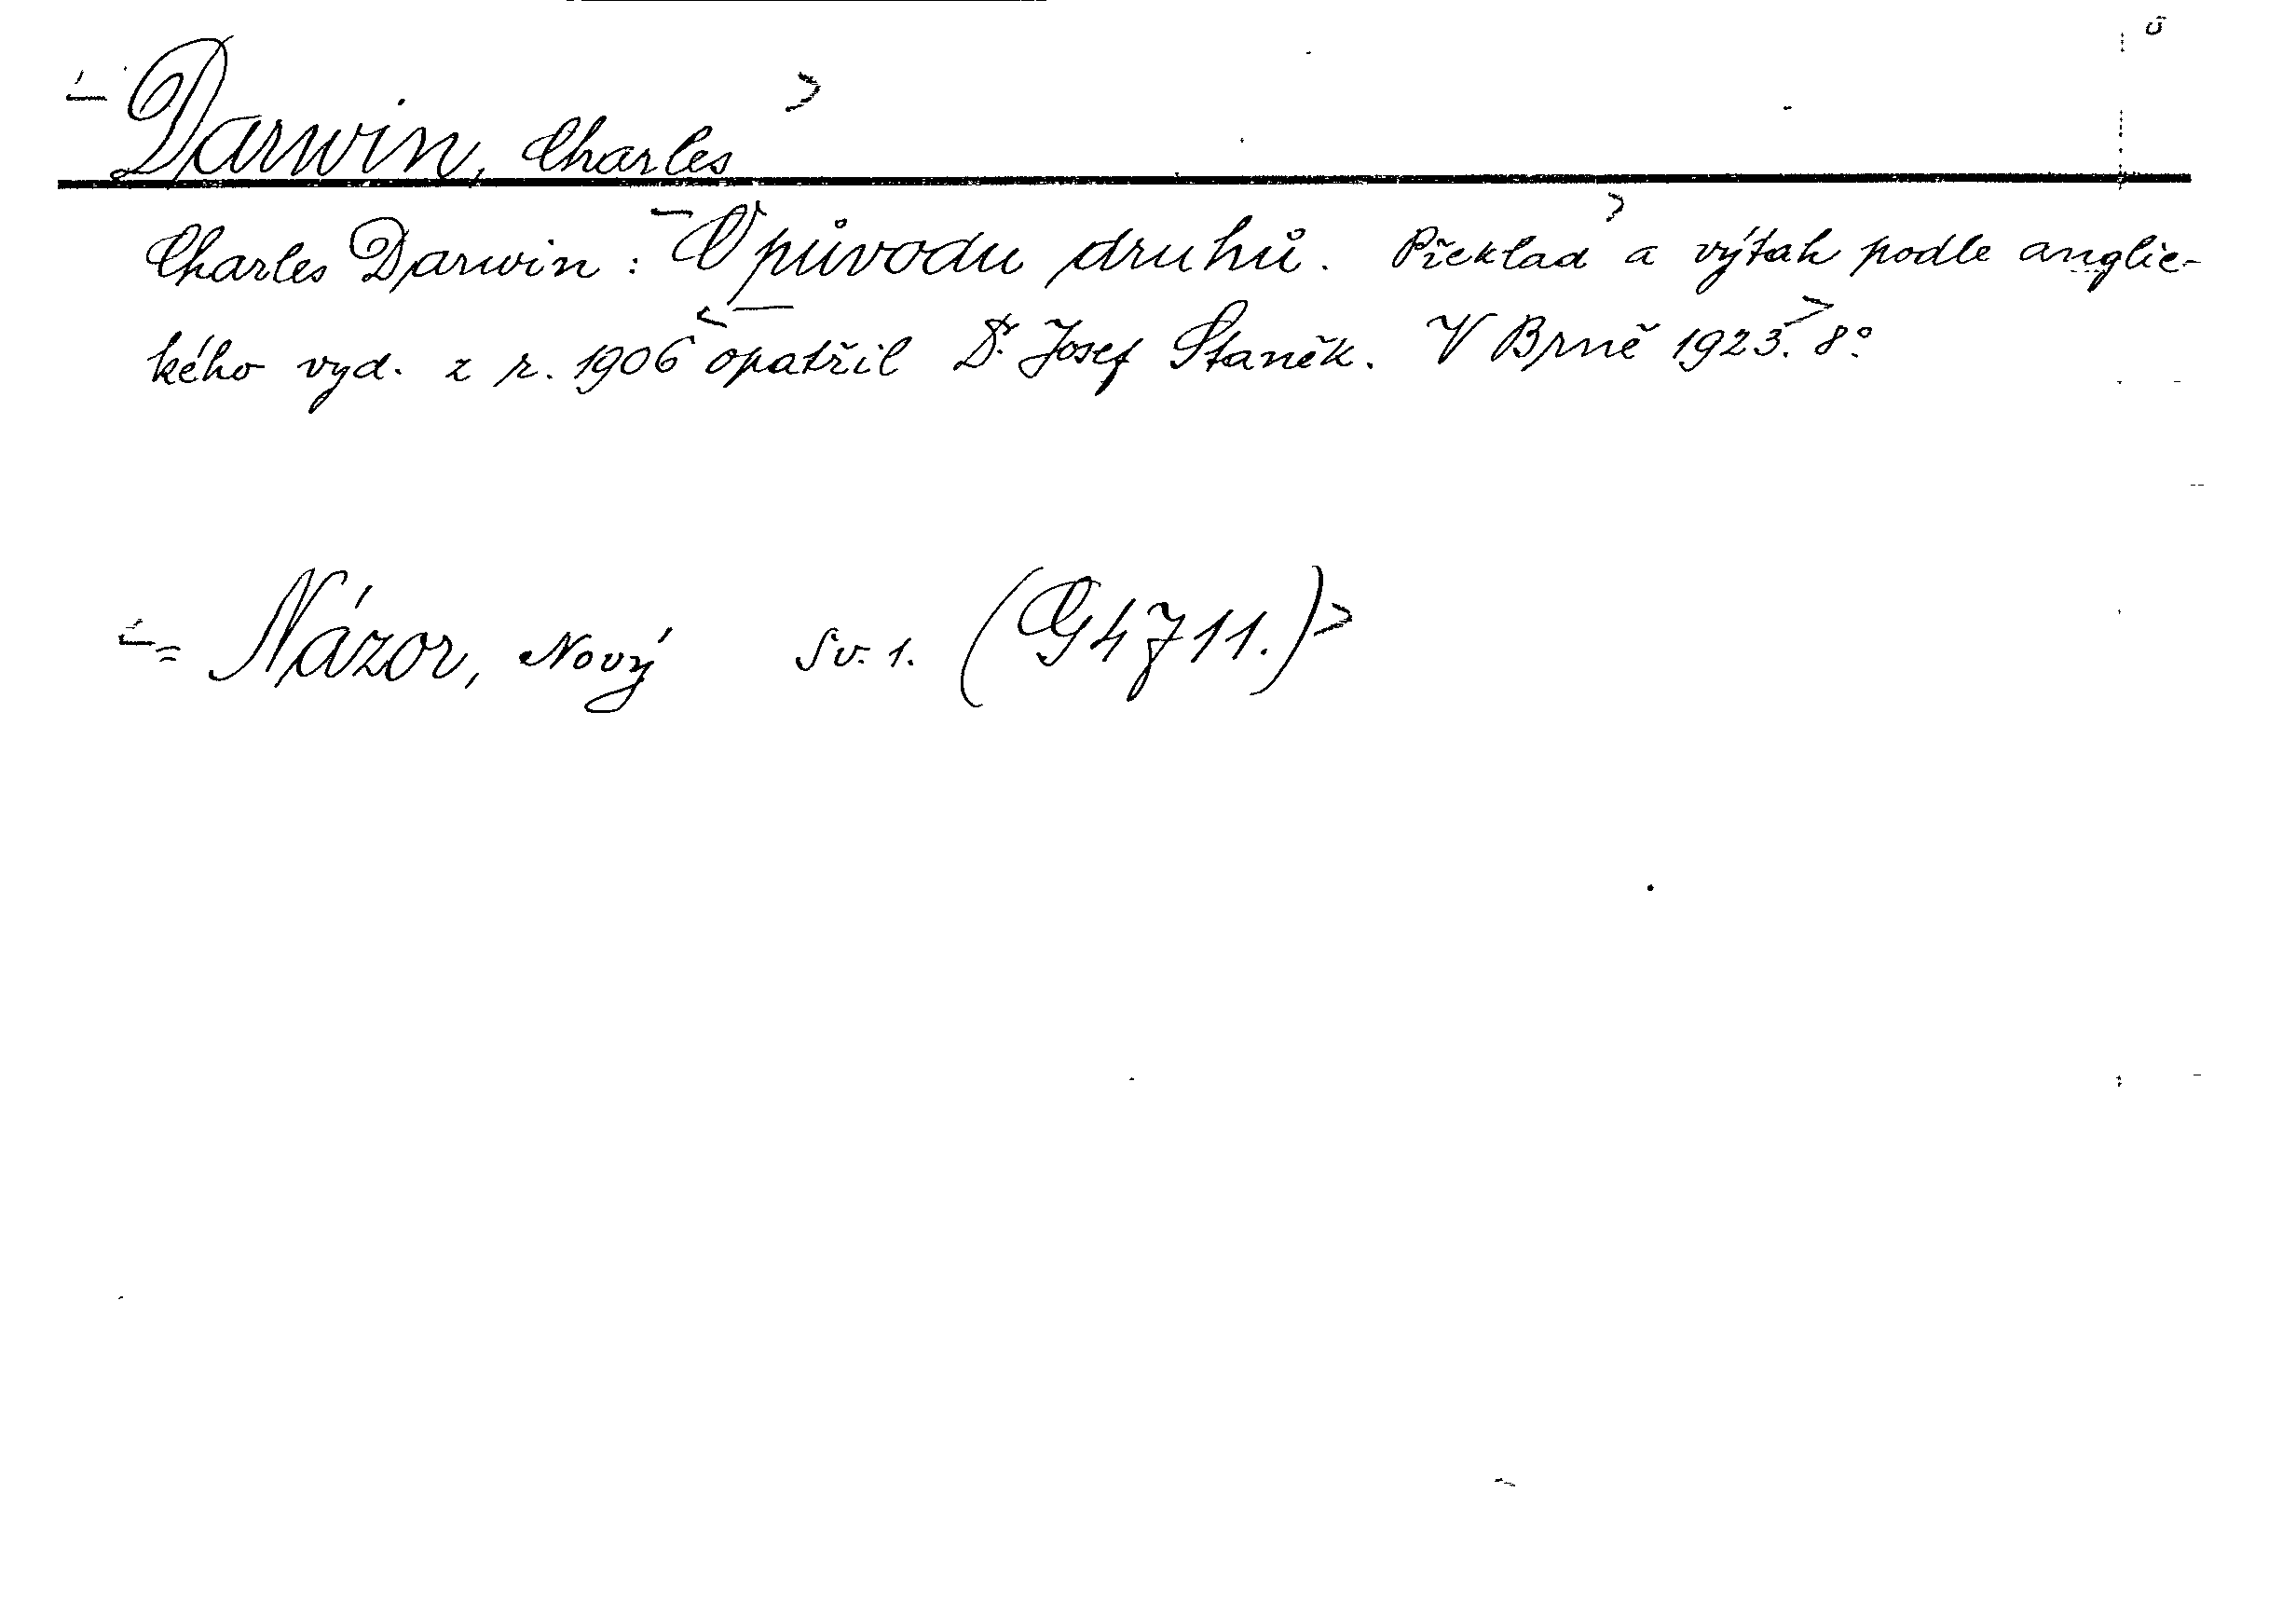 Darwin, Charles
Charles Darwin: O původu druhů. Překlad a výtah podle anglic-
kého vyd. z r. 1906 opatřil Dr. Josef Staněk. V Brně 1923. 8°.
= Názor, Nový Sv. 1. (G4711.)